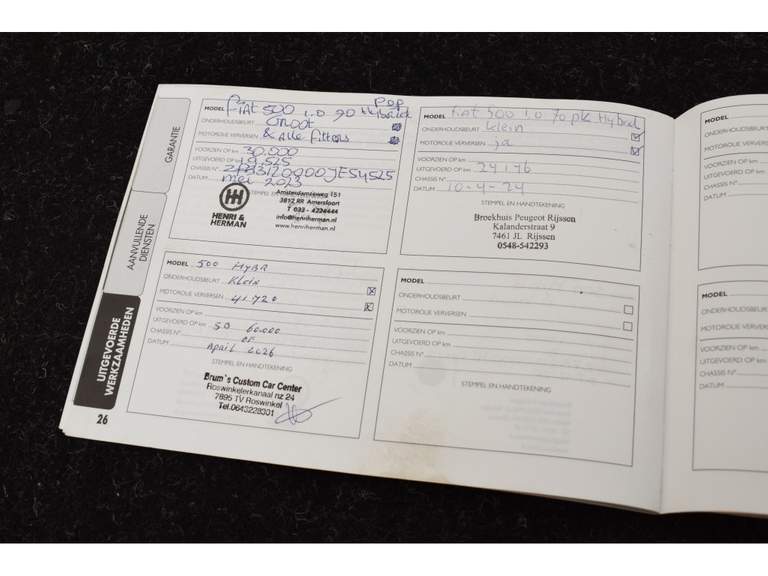 GARANTIE
AANVULLENDE
DIENSTEN
UITGEVOERDE
WERKZAAMHEDEN
26
MODEL Fiat 500 1.0 70 Hybride
POP
ONDERHOUDSBEURT Groot
MOTOROLIE VERVERSEN & Alle filters
VOORZIEN OP km 30.000
UITGEVOERD OP km 19.525
CHASSIS N°
DATUM mei 2023
STEMPEL EN
Amsterdamseweg 151
3812 RR Amersfoort
T 033 - 4224444
info@henriherman.nl
www.henriherman.nl
HENRI &
HERMAN
MODEL Fiat 500 1.0 70 pk Hybrid
ONDERHOUDSBEURT Klein
MOTOROLIE VERVERSEN ja
VOORZIEN OP km
UITGEVOERD OP km 24176
CHASSIS N°
DATUM 10-4-24
STEMPEL EN HANDTEKENING
Broekhuis Peugeot Rijssen
Kalanderstraat 9
7461 JL Rijssen
0548-542293
MODEL 500 HYBR
ONDERHOUDSBEURT Klein
MOTOROLIE VERVERSEN 41.720
VOORZIEN OP km
UITGEVOERD OP km 60.000
CHASSIS N° OF
DATUM April 2026
STEMPEL EN HANDTEKENING
Brum's Custom Car Center
Roswinkelerkanaal nz 24
7895 TV Roswinkel
Tel.0643228301
MODEL
ONDERHOUDSBEURT
MOTOROLIE VERVERSEN
VOORZIEN OP km
UITGEVOERD OP km
CHASSIS N°
DATUM
STEMPEL EN HANDTEKENING
MODEL
ONDERHOUDSBEURT
MOTOROLIE
VOORZIEN OP km
UITGEVOERD OP
CHASSIS N°
DATUM
MODEL
ONDERHOUDSBEURT
MOTOROLIE
VOORZIEN OP km
UITGEVOERD OP
CHASSIS N°
DATUM